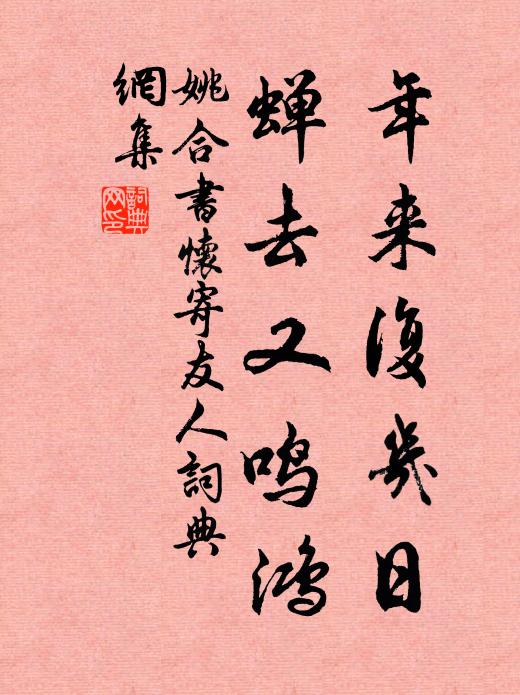 年来復幾日
蝉去又鸣鸿
姚合書懷寄友人詞典
網集
詞典
网印